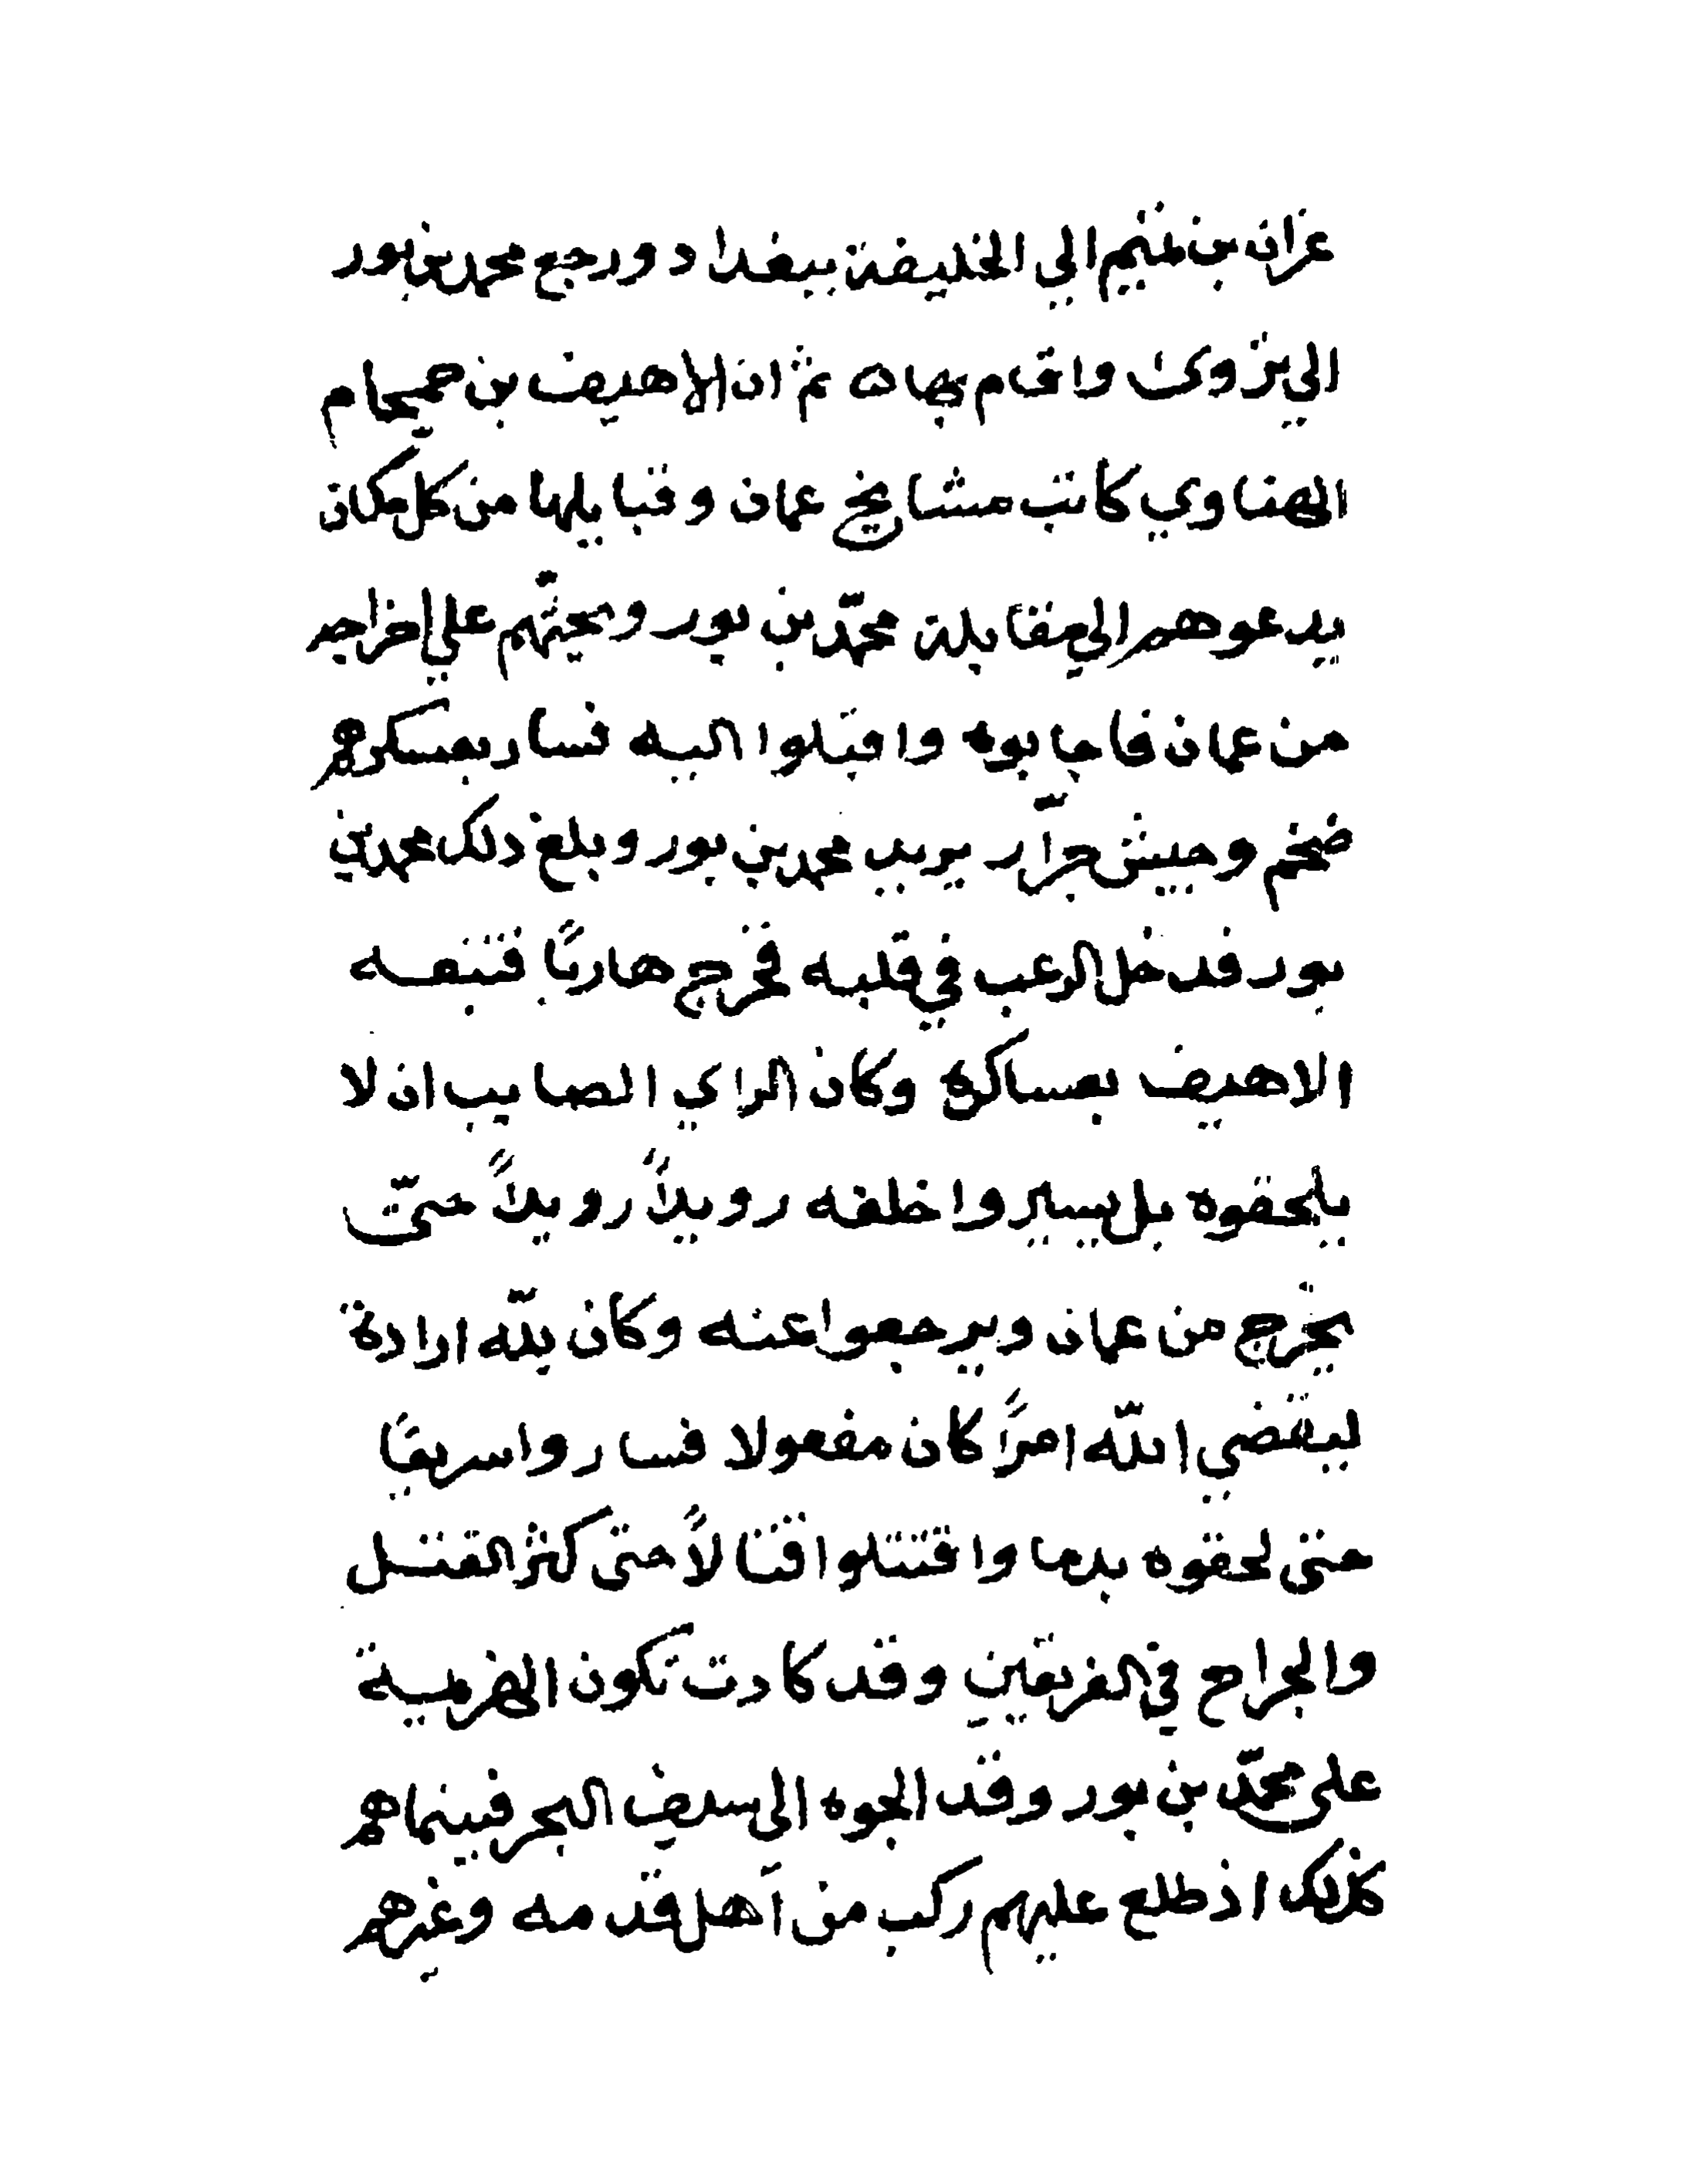 عزان بن تميم الي الخليفة ببغداد ورجع محمد بن بور
الي نزوى واقام بها ثم ان الاهيف بن حمحام
الهناوي كاتب مشايخ عمان وقبايلها من كل مكان
يدعوهم الي مقابلة محمّد بن بور ويحثّهم علي اخراجه
من عمان فاجابوه واقبلوا اليه فسار بعسكرهم
ضخم وجيش جرّار يريد محمد بن بور وبلغ ذلك محمد بن
بور فدخل الرعب في قلبه فخرج هاربًا فتبعه
الاهيف بعساكره وكان الراي الصايب ان لا
يلحقوه بل يسيروا خلفه رويدًا رويدًا حتّى
يخرج من عمان ويرجعوا عنه وكان للّه ارادة
ليقضي اللّه امرًا كان مفعولا فساروا سريعًا
حتى لحقوه بدما واقتتلوا قتالًا حتى كثر القتل
والجراح في الفريقين وقد كادت تكون الهزيمة
على محمّد بن بور وقد الجوه الى سيف البحر فبينما هم
كذلك اذ طلع عليهم ركب من اهل قدمه وغيرهم